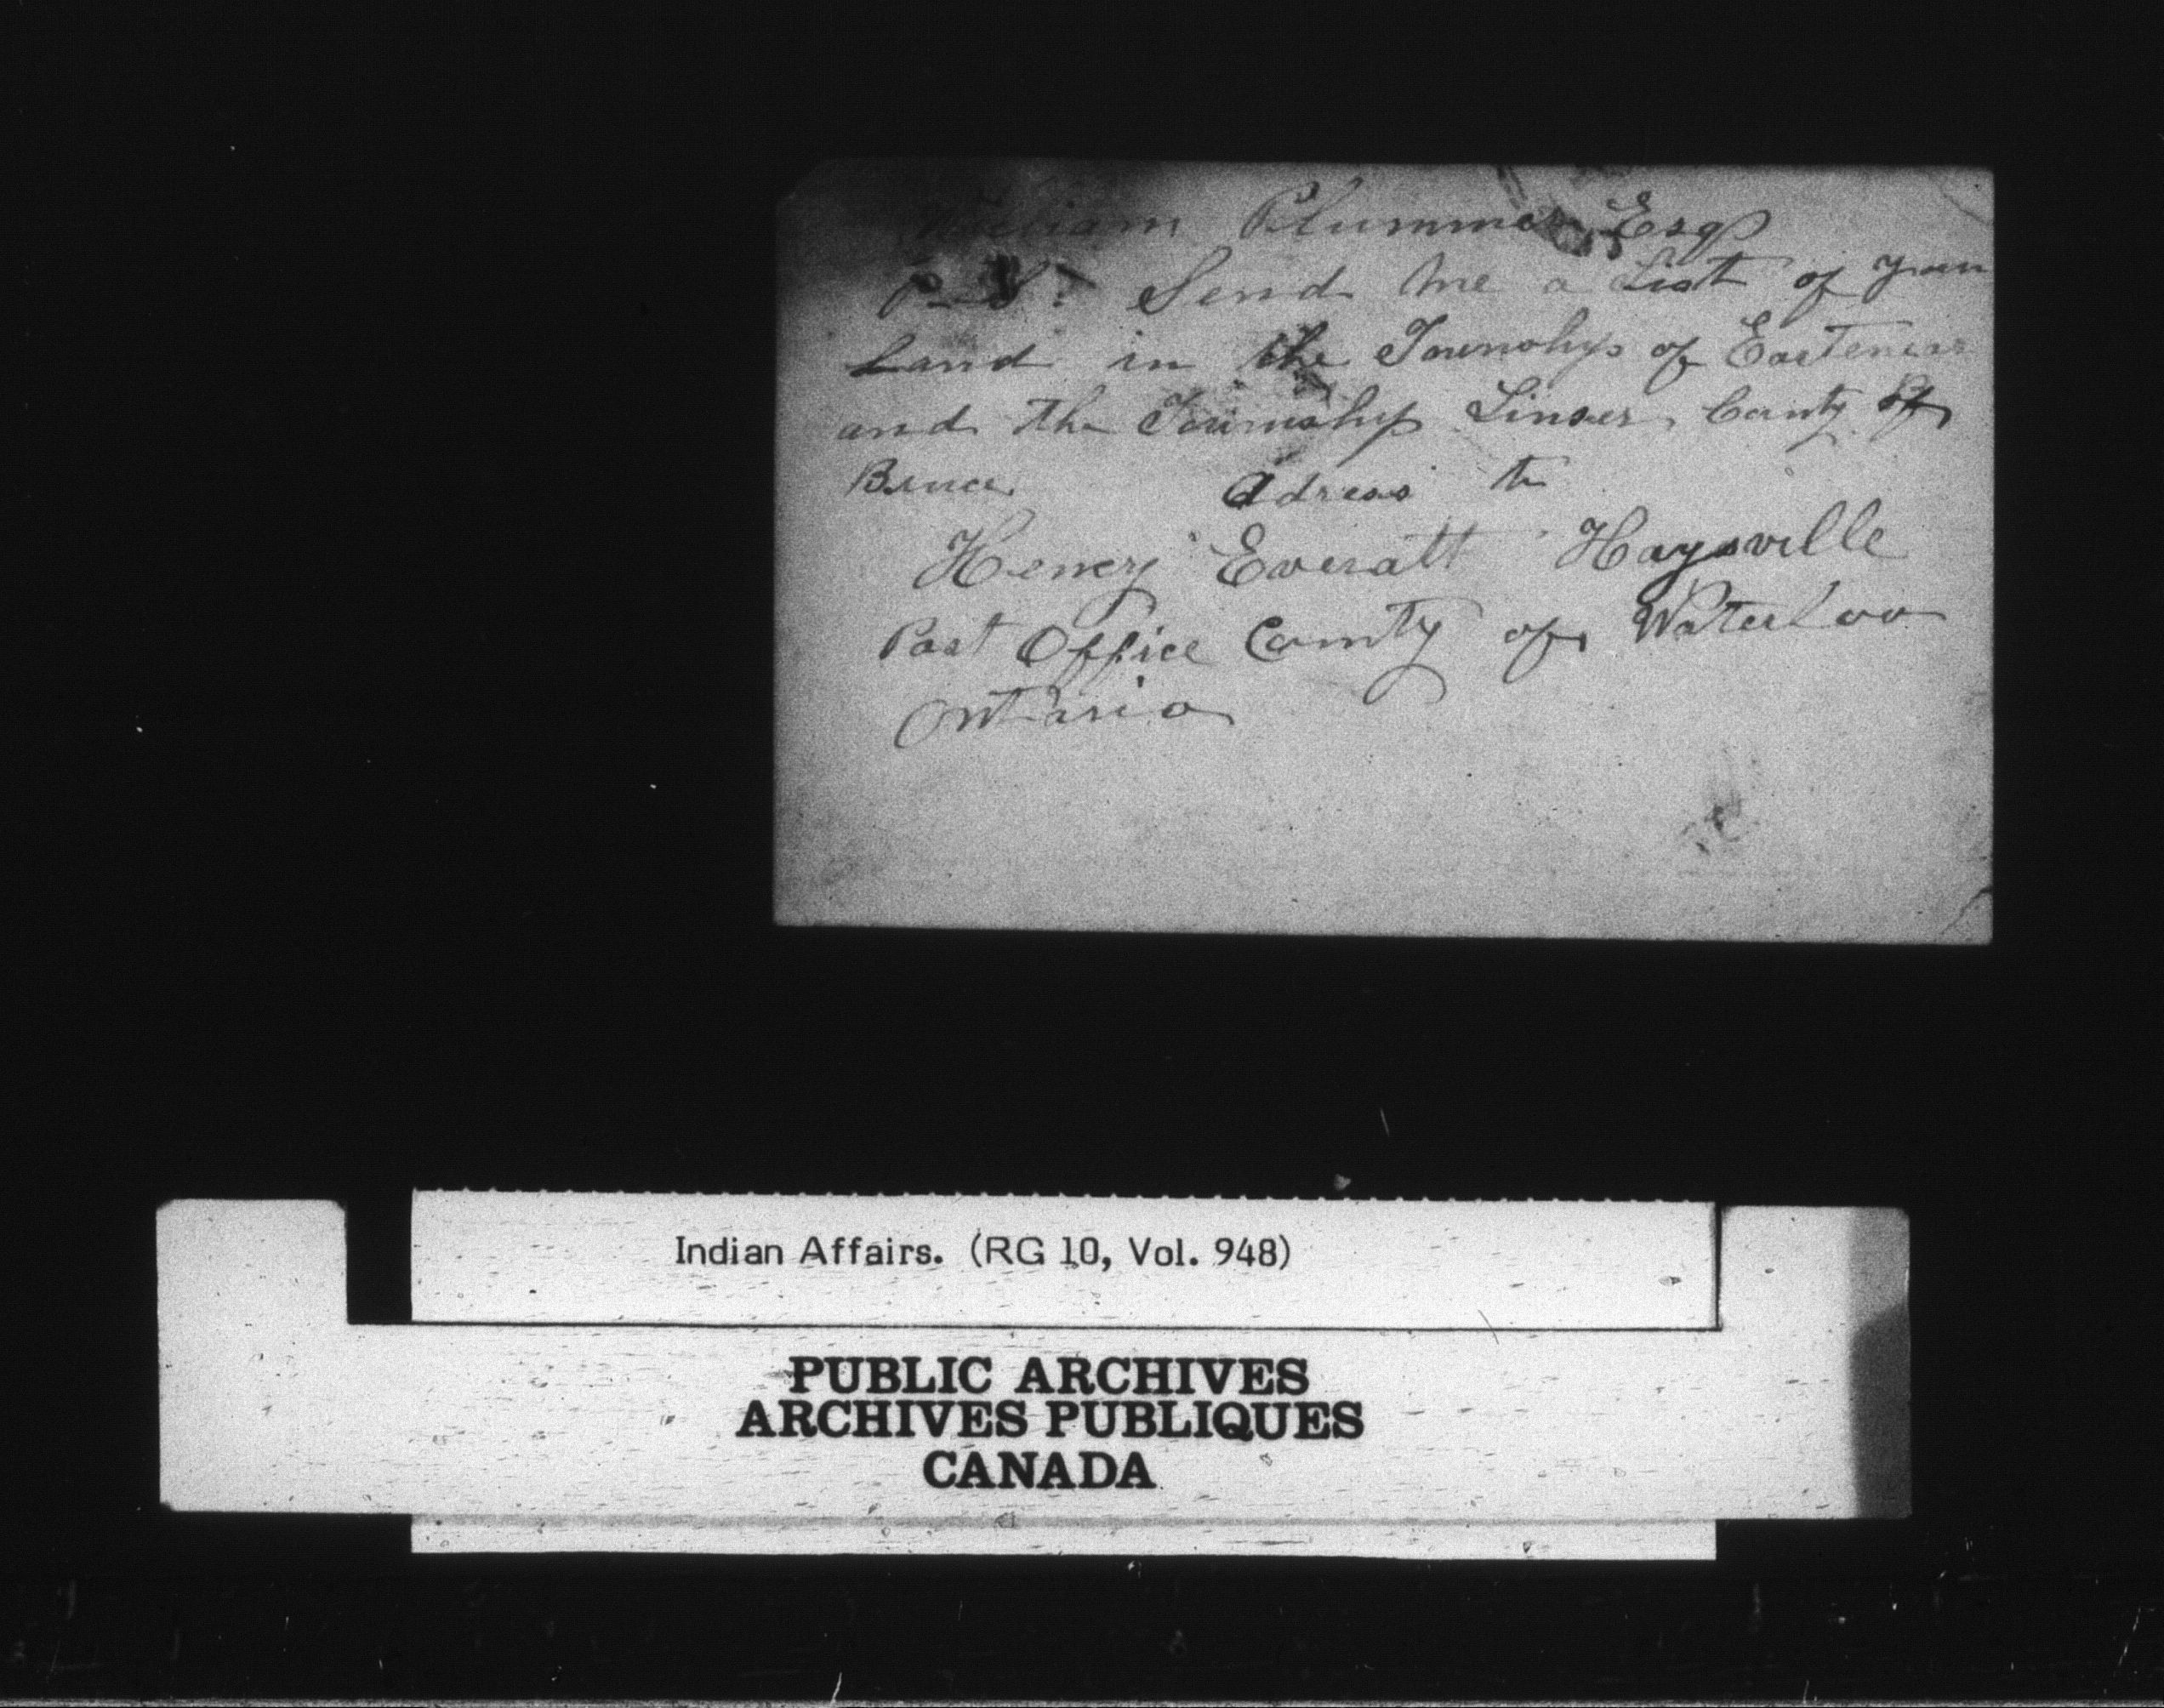 William Plummer Esqr
P.S. Send me a List of your
Land in the Townships of Eastenor
and the Township Linser County of
Bruce Adress to
Henry Everatt Haysville
Post Office County of Waterloo
Ontario
Indian Affairs. (RG 10, Vol. 948)
PUBLIC ARCHIVES
ARCHIVES PUBLIQUES
CANADA